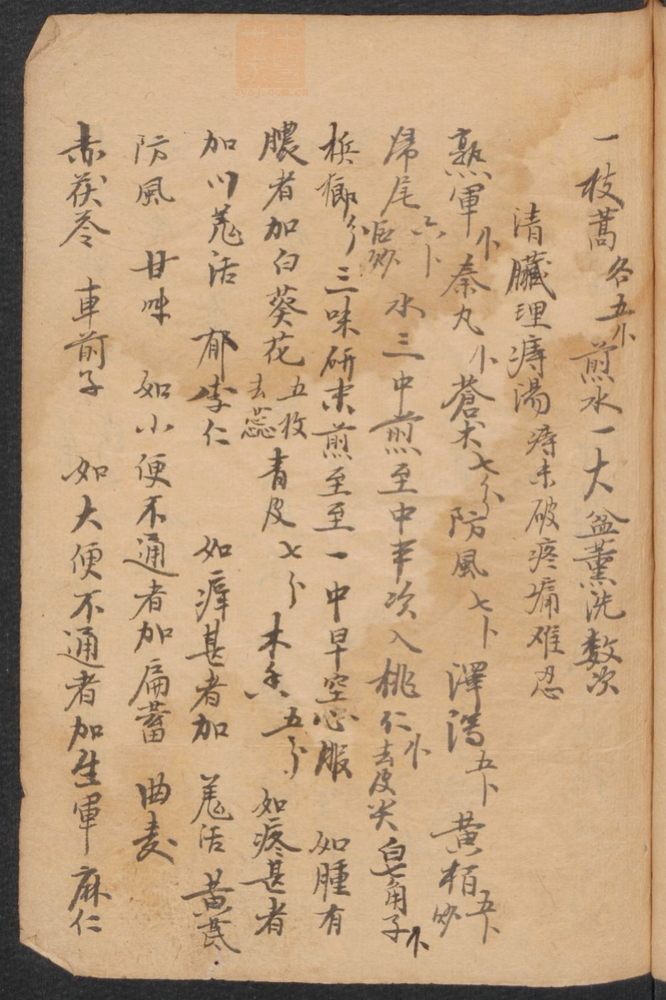 一枝蒿各五卜煎水一大盆薰洗数次
清臟理痔湯 痔未破疼痛难忍
熟軍卜秦丸卜蒼术七分防風七卜澤瀉五卜黄栢五卜炒
归尾六卜水三中煎至中半次入桃仁卜去皮尖皂角子卜
梹榔分三味研末煎至至一中早空心服 如腫有
膿者加白葵花五枚去蕊青皮七分木香五分 如疼甚者
加川羗活 郁李仁 如痒甚者加 羗活 黄芪
防風 甘味 如小便不通者加扁蓄 曲麦
赤茯苓 車前子 如大便不通者加生軍 麻仁